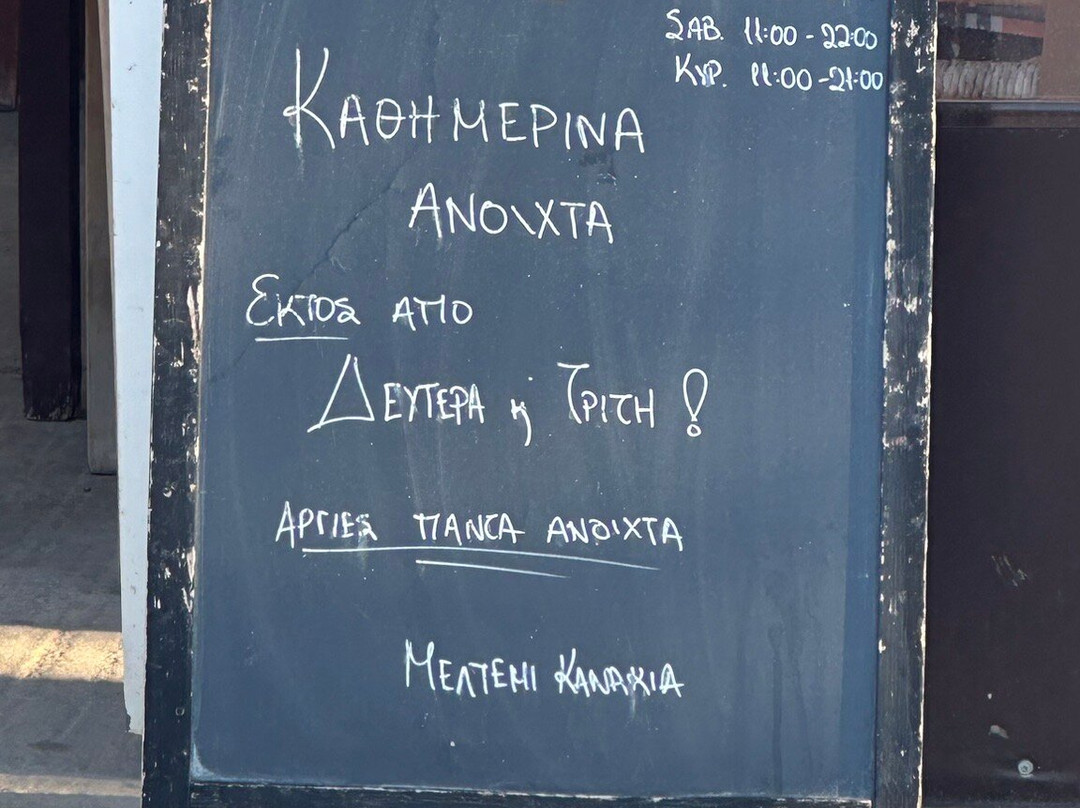 ΣΑΒ. 11:00 - 22:00
ΚΥΡ. 11:00 - 21:00
ΚΑΘΗΜΕΡΙΝΑ
ΑΝΟΙΧΤΑ
ΕΚΤΟΣ ΑΠΟ
ΔΕΥΤΕΡΑ κ' ΤΡΙΤΗ!
ΑΡΓΙΕΣ ΠΑΝΤΑ ΑΝΟΙΧΤΑ
ΜΕΛΤΕΜΙ ΚΑΝΑΚΙΑ